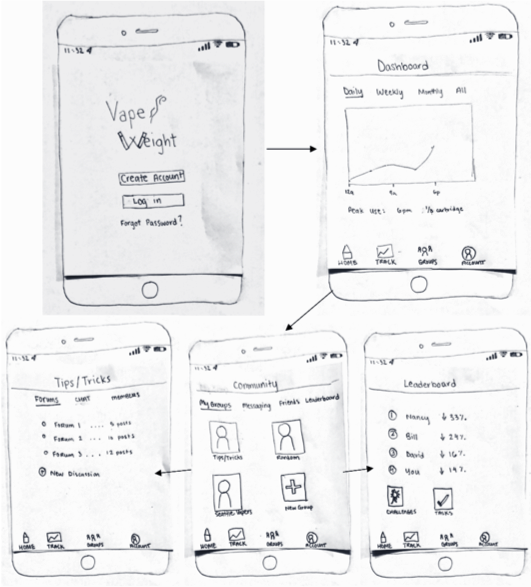 11:32
Vape
Weight
Create Account
Log in
Forgot Password?
11:32
Dashboard
Daily Weekly Monthly All
12a 9a 6p
Peak Use: 6pm
cartridge
HOME TRACK GROUPS ACCOUNT
11:32
Tips/Tricks
Forums CHAT MEMBERS
Forum 1 .... 5 posts
Forum 2 ... 10 posts
Forum 3 ... 12 posts
New Discussion
HOME TRACK GROUPS ACCOUNT
11:32
Community
My Groups Messaging Friends Leaderboard
Tips/Tricks Random
Seattle Vapers New Group
HOME TRACK GROUPS ACCOUNT
11:32
Leaderboard
1 Nancy ↓ 33%
2 Bill ↓ 29%
3 David ↓ 16%
You ↓ 14%
CHALLENGES TRICKS
HOME TRACK GROUPS ACCOUNT